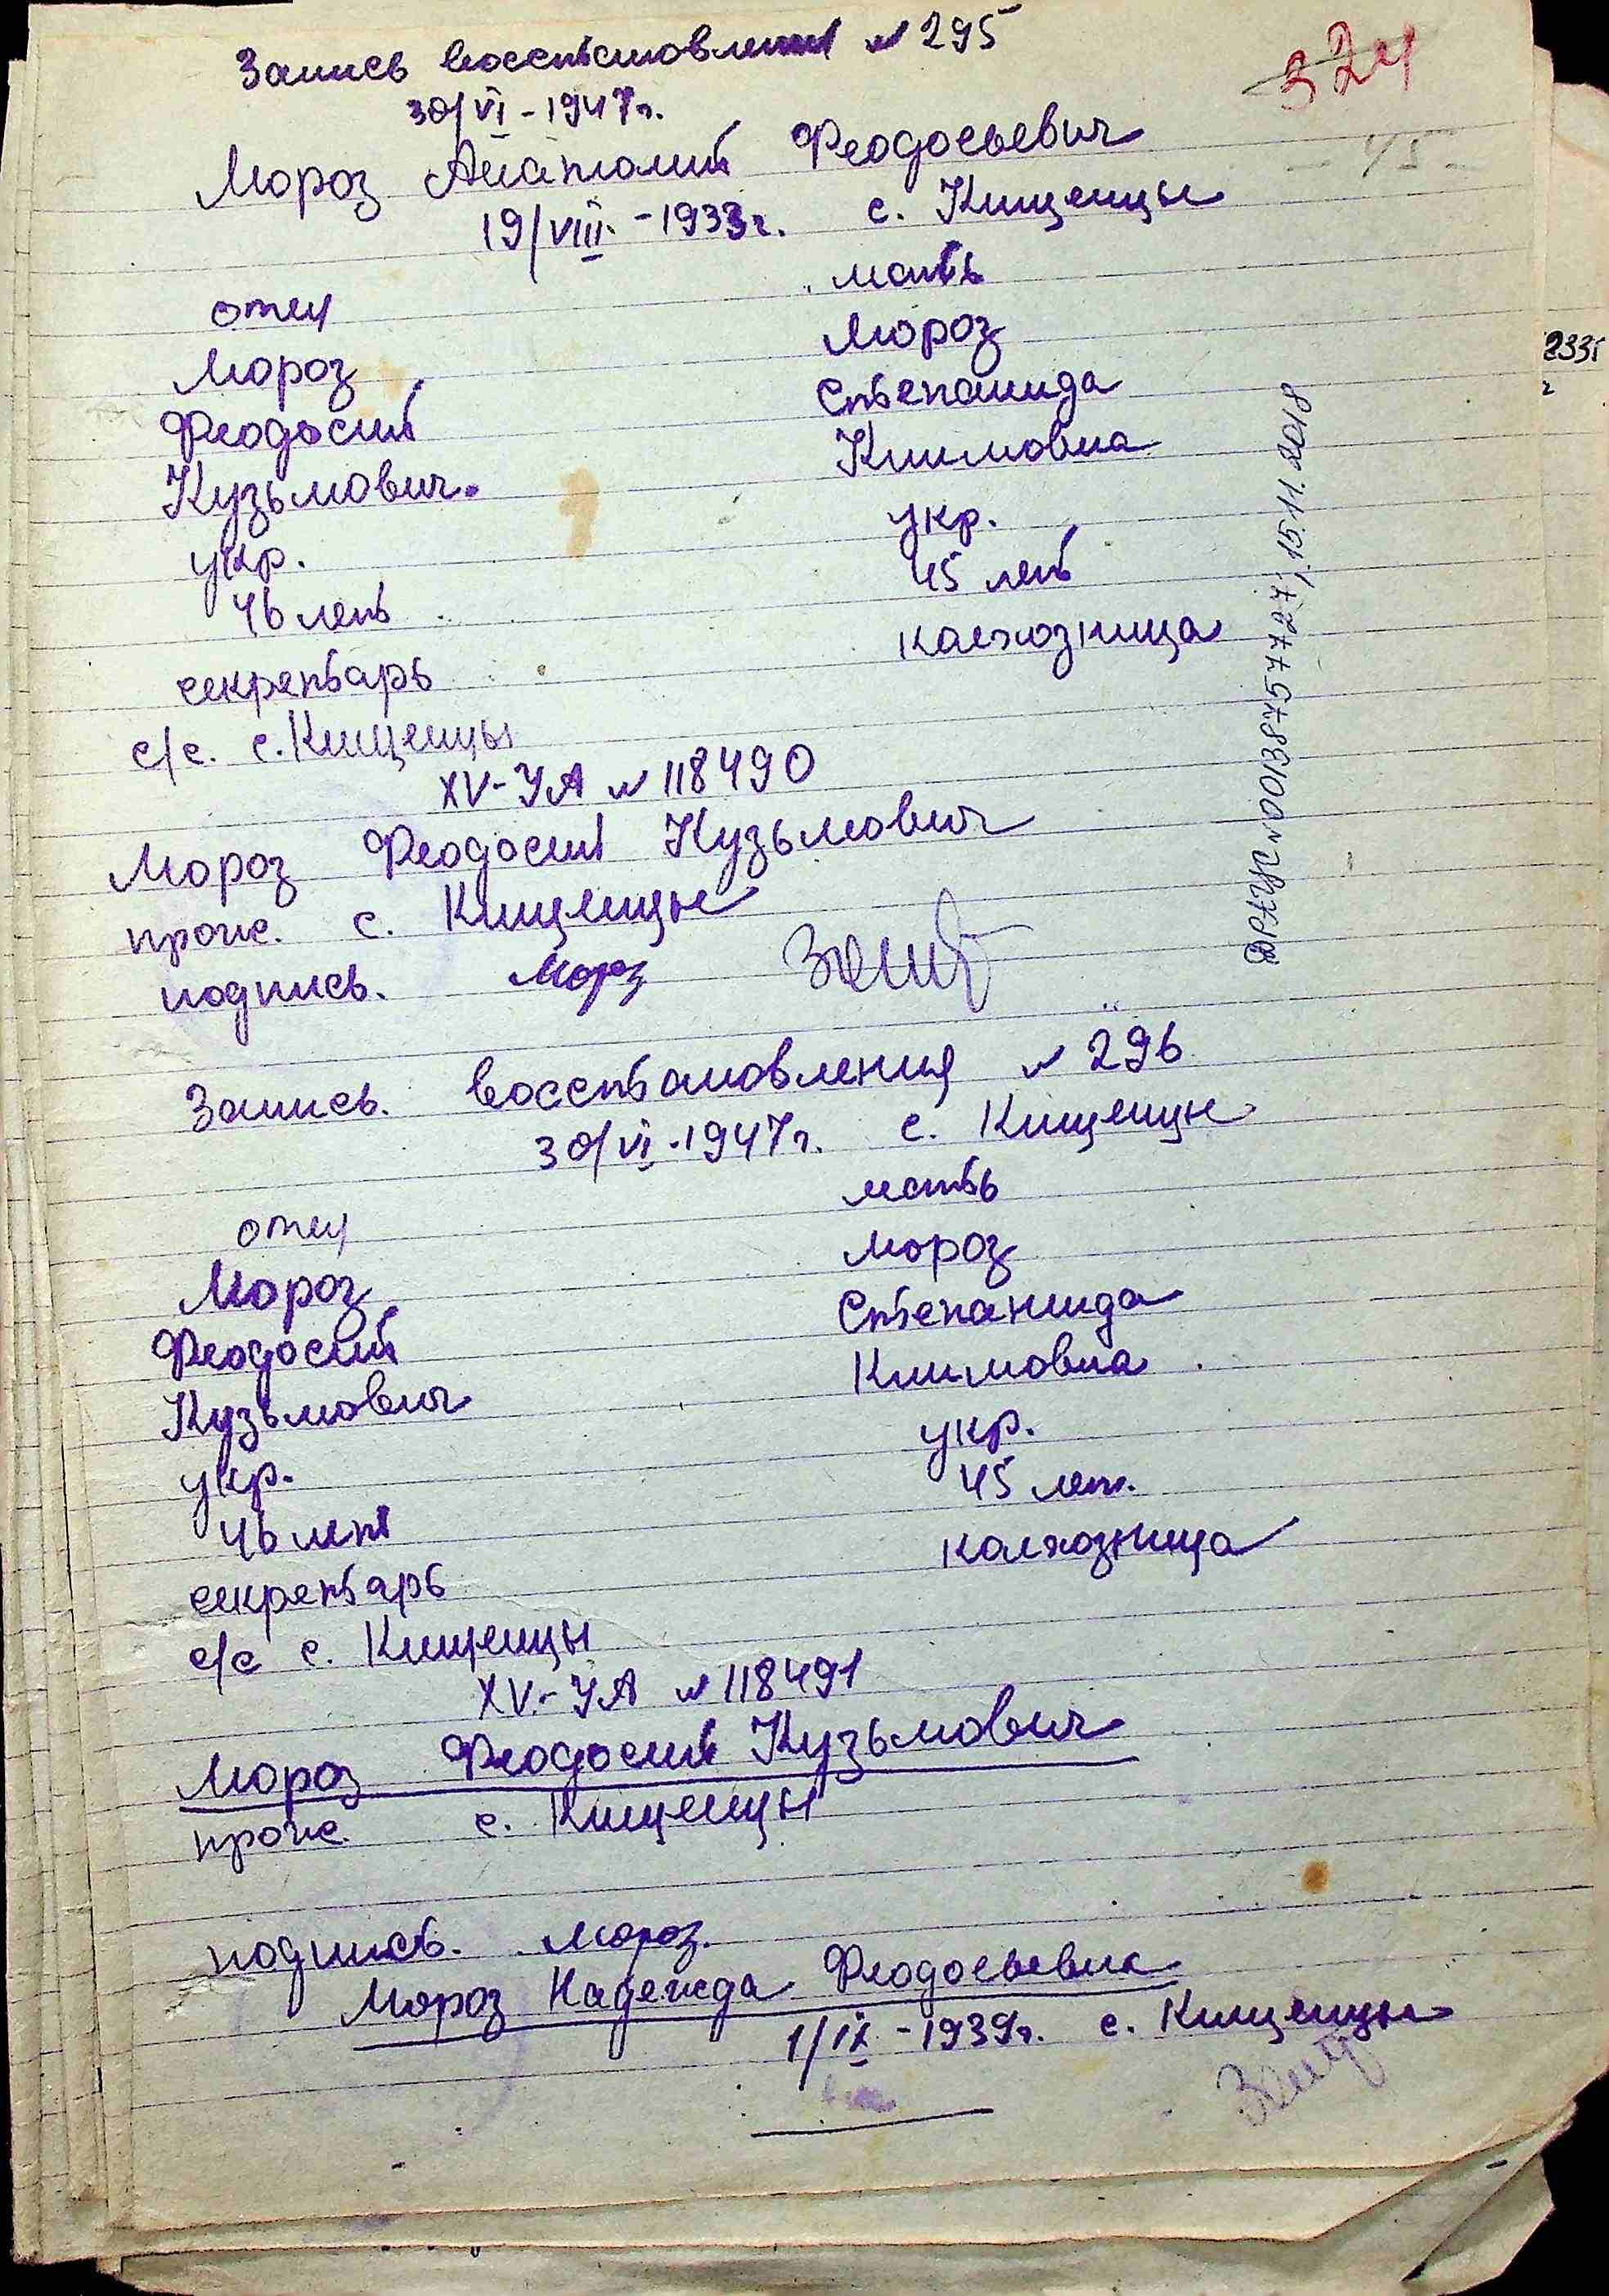 Запись восстановления № 295
324
30/VI - 1947г.
Мороз Анатолий Феодосьевич
19/VIII - 1933г. с. Кищенцы
отец мать
Мороз Мороз
Феодосий Степанида
Кузьмович. Климовна
укр. укр.
46 лет 45 лет
секретарь колхозница
с/с. с. Кищенцы
XV-УА № 118490
Мороз Феодосий Кузьмович
прож. с. Кищенцы
подпись. Мороз
ДРАЦС № 00138757727, 15.11.2018
Запись. восстановления № 296
30/VI - 1947г. с. Кищенцы
отец мать
Мороз Мороз
Феодосий Степанида
Кузьмович Климовна
укр. укр.
46 лет 45 лет.
секретарь колхозница
с/с с. Кищенцы
XV.-УА № 118491
Мороз Феодосий Кузьмович
прож. с. Кищенцы
подпись. Мороз.
Мороз Надежда Феодосьевна
1/IX - 1939г. с. Кищенцы